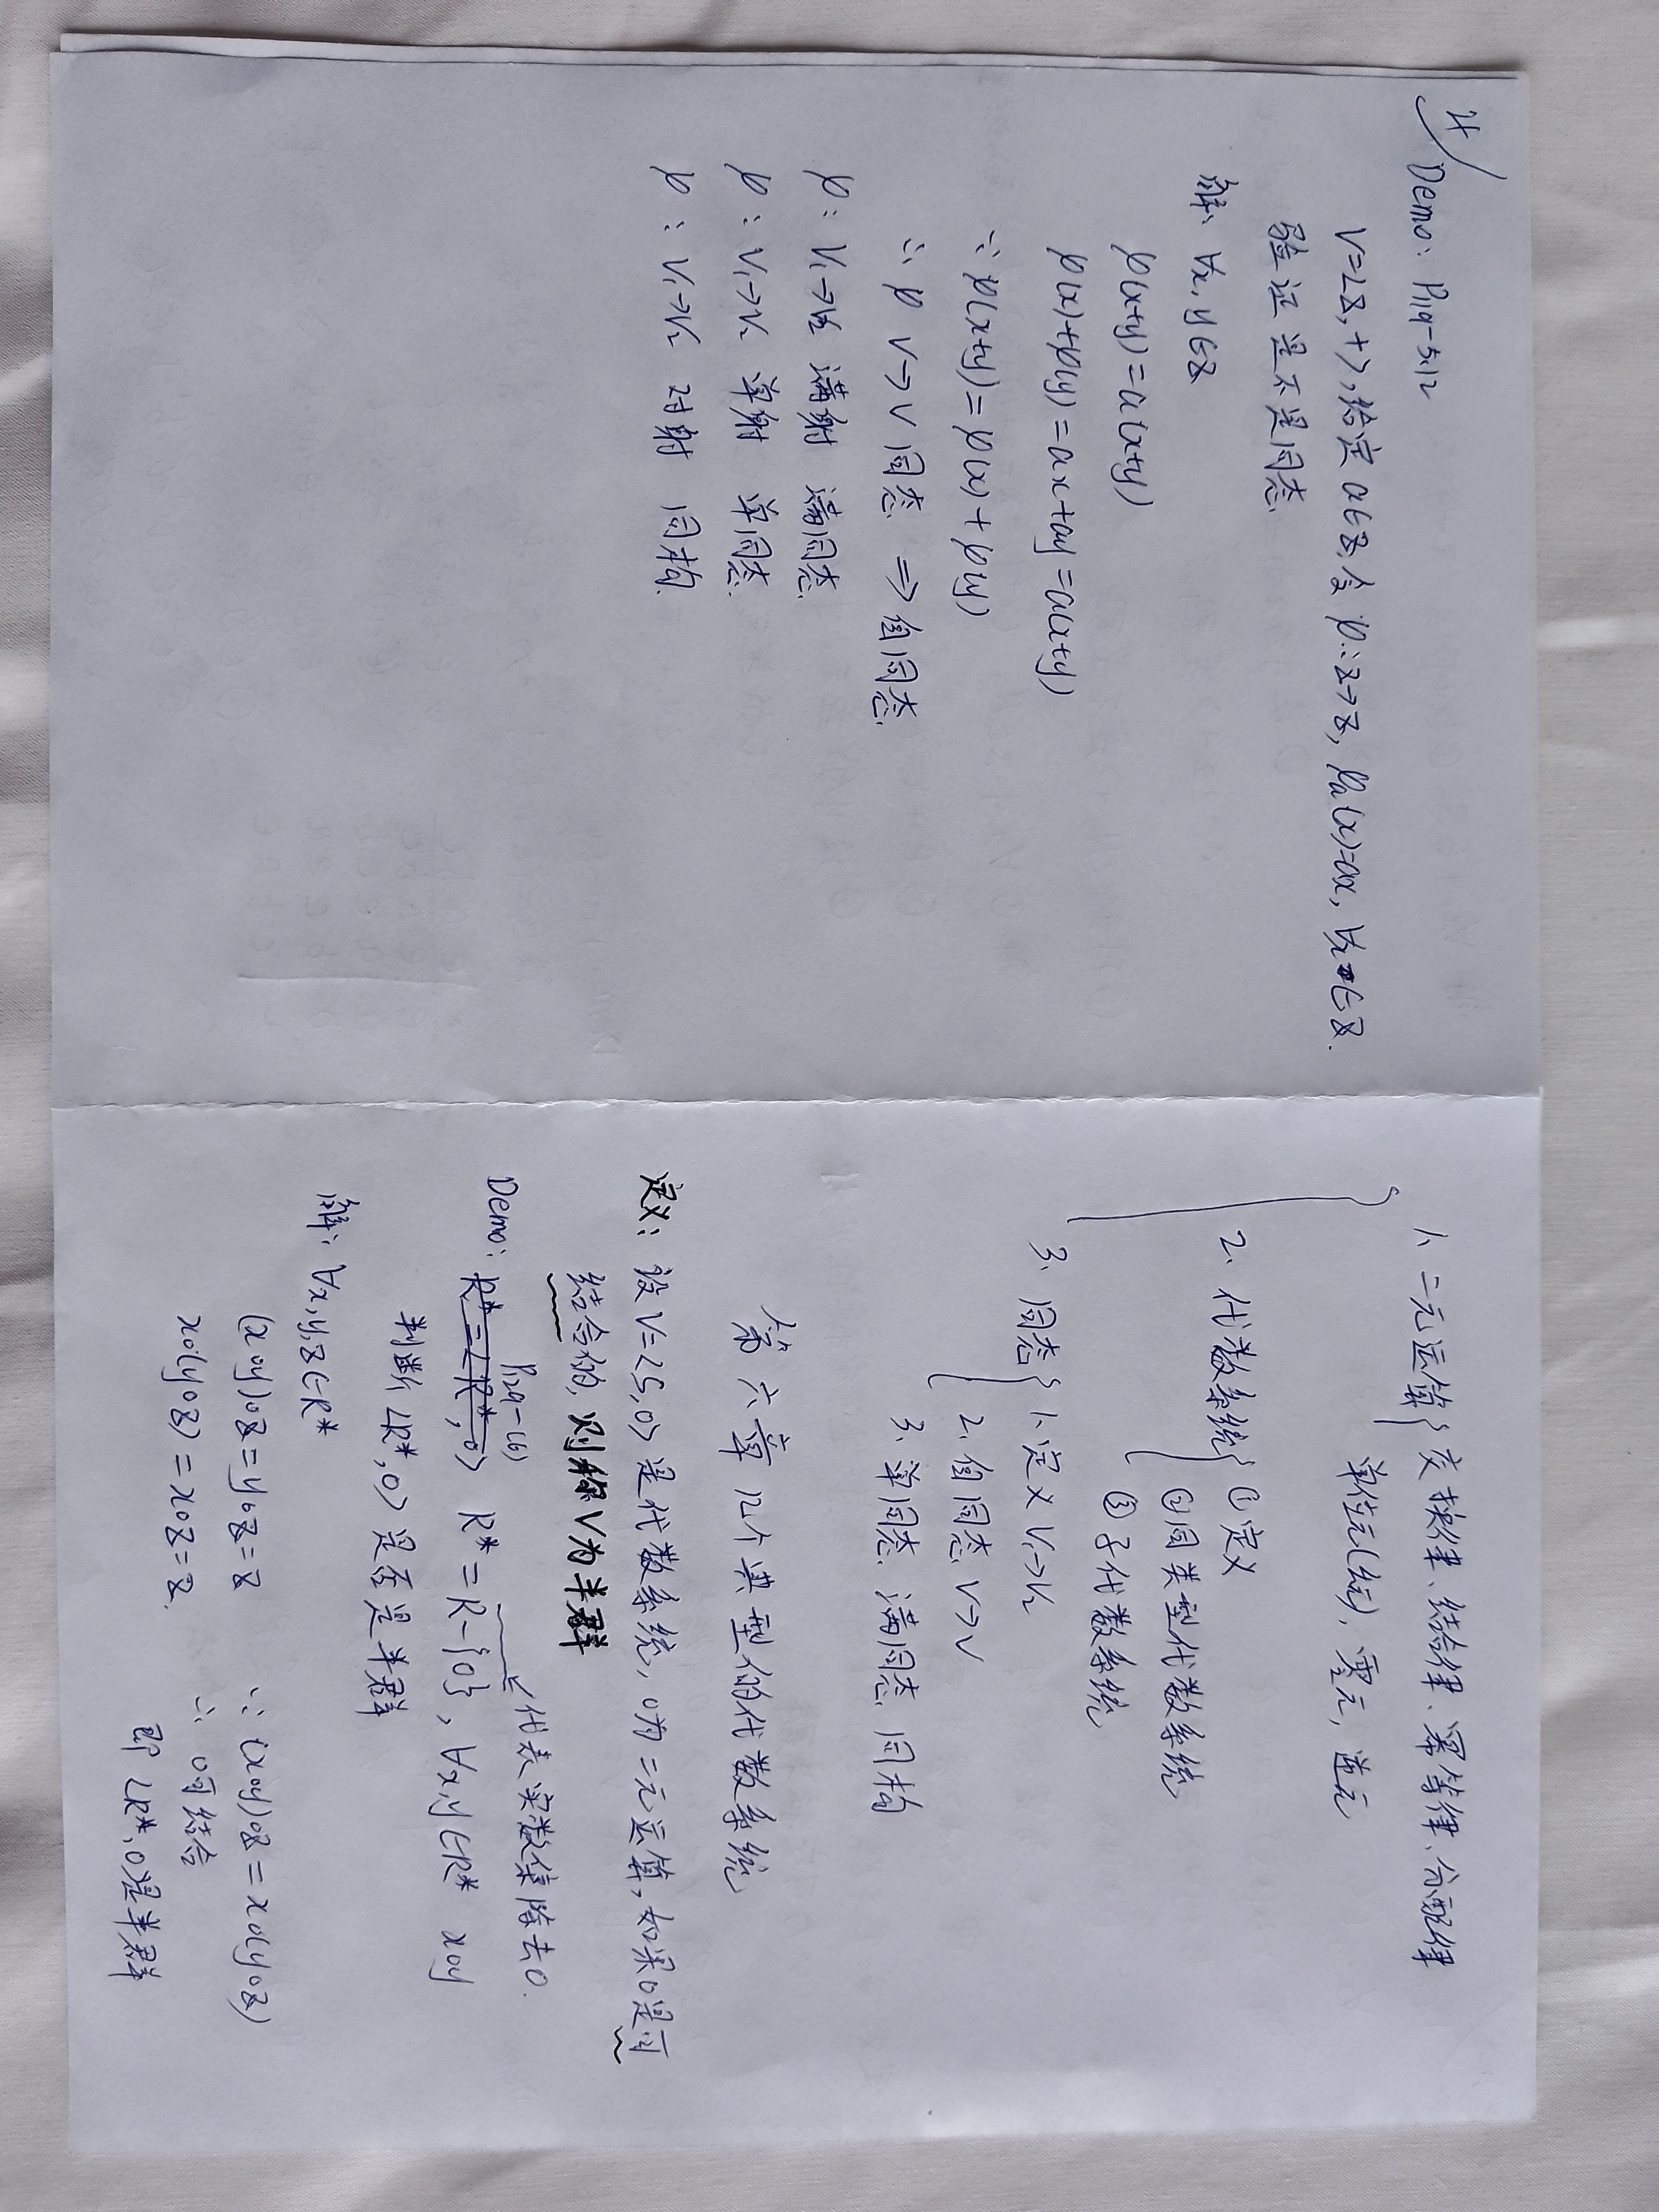 4
Demo: P119-5.12
V=<Z,+>,给定a∈Z,令φ:Z→Z, φa(x)=ax, ∀x∈Z.
验证是不是同态.
解: ∀x,y∈Z
φ(x+y)=a(x+y)
φ(x)+φ(y)=ax+ay=a(x+y)
∵ φ(x+y)=φ(x)+φ(y)
∴ φ V→V 同态 ⇒ 自同态.
φ: V1→V2 满射 满同态.
φ: V1→V2 单射 单同态.
φ: V1→V2 对射 同构.
1、二元运算{交换律、结合律、幂等律、分配律
单位元(幺元), 零元, 逆元
2、代数系统{①定义
②同类型代数系统
③子代数系统
3、同态{1、定义 V1→V2
2、自同态 V→V
3、单同态. 满同态. 同构
第六章 几个典型的代数系统
定义: 设V=<S,o>是代数系统, o为二元运算,如果o是可
结合的, 则称V为半群
P129-(6) ↙代表实数集除去0.
Demo: R*=<R*,o> R*=R-{0}, ∀x,y∈R* xoy
判断<R*,o>是否是半群
解: ∀x,y,z∈R*
(xoy)oz=yoz=z ∵ (xoy)oz=xo(yoz)
xo(yoz)=xoz=z. ∴ o可结合
即 <R*,o>是半群